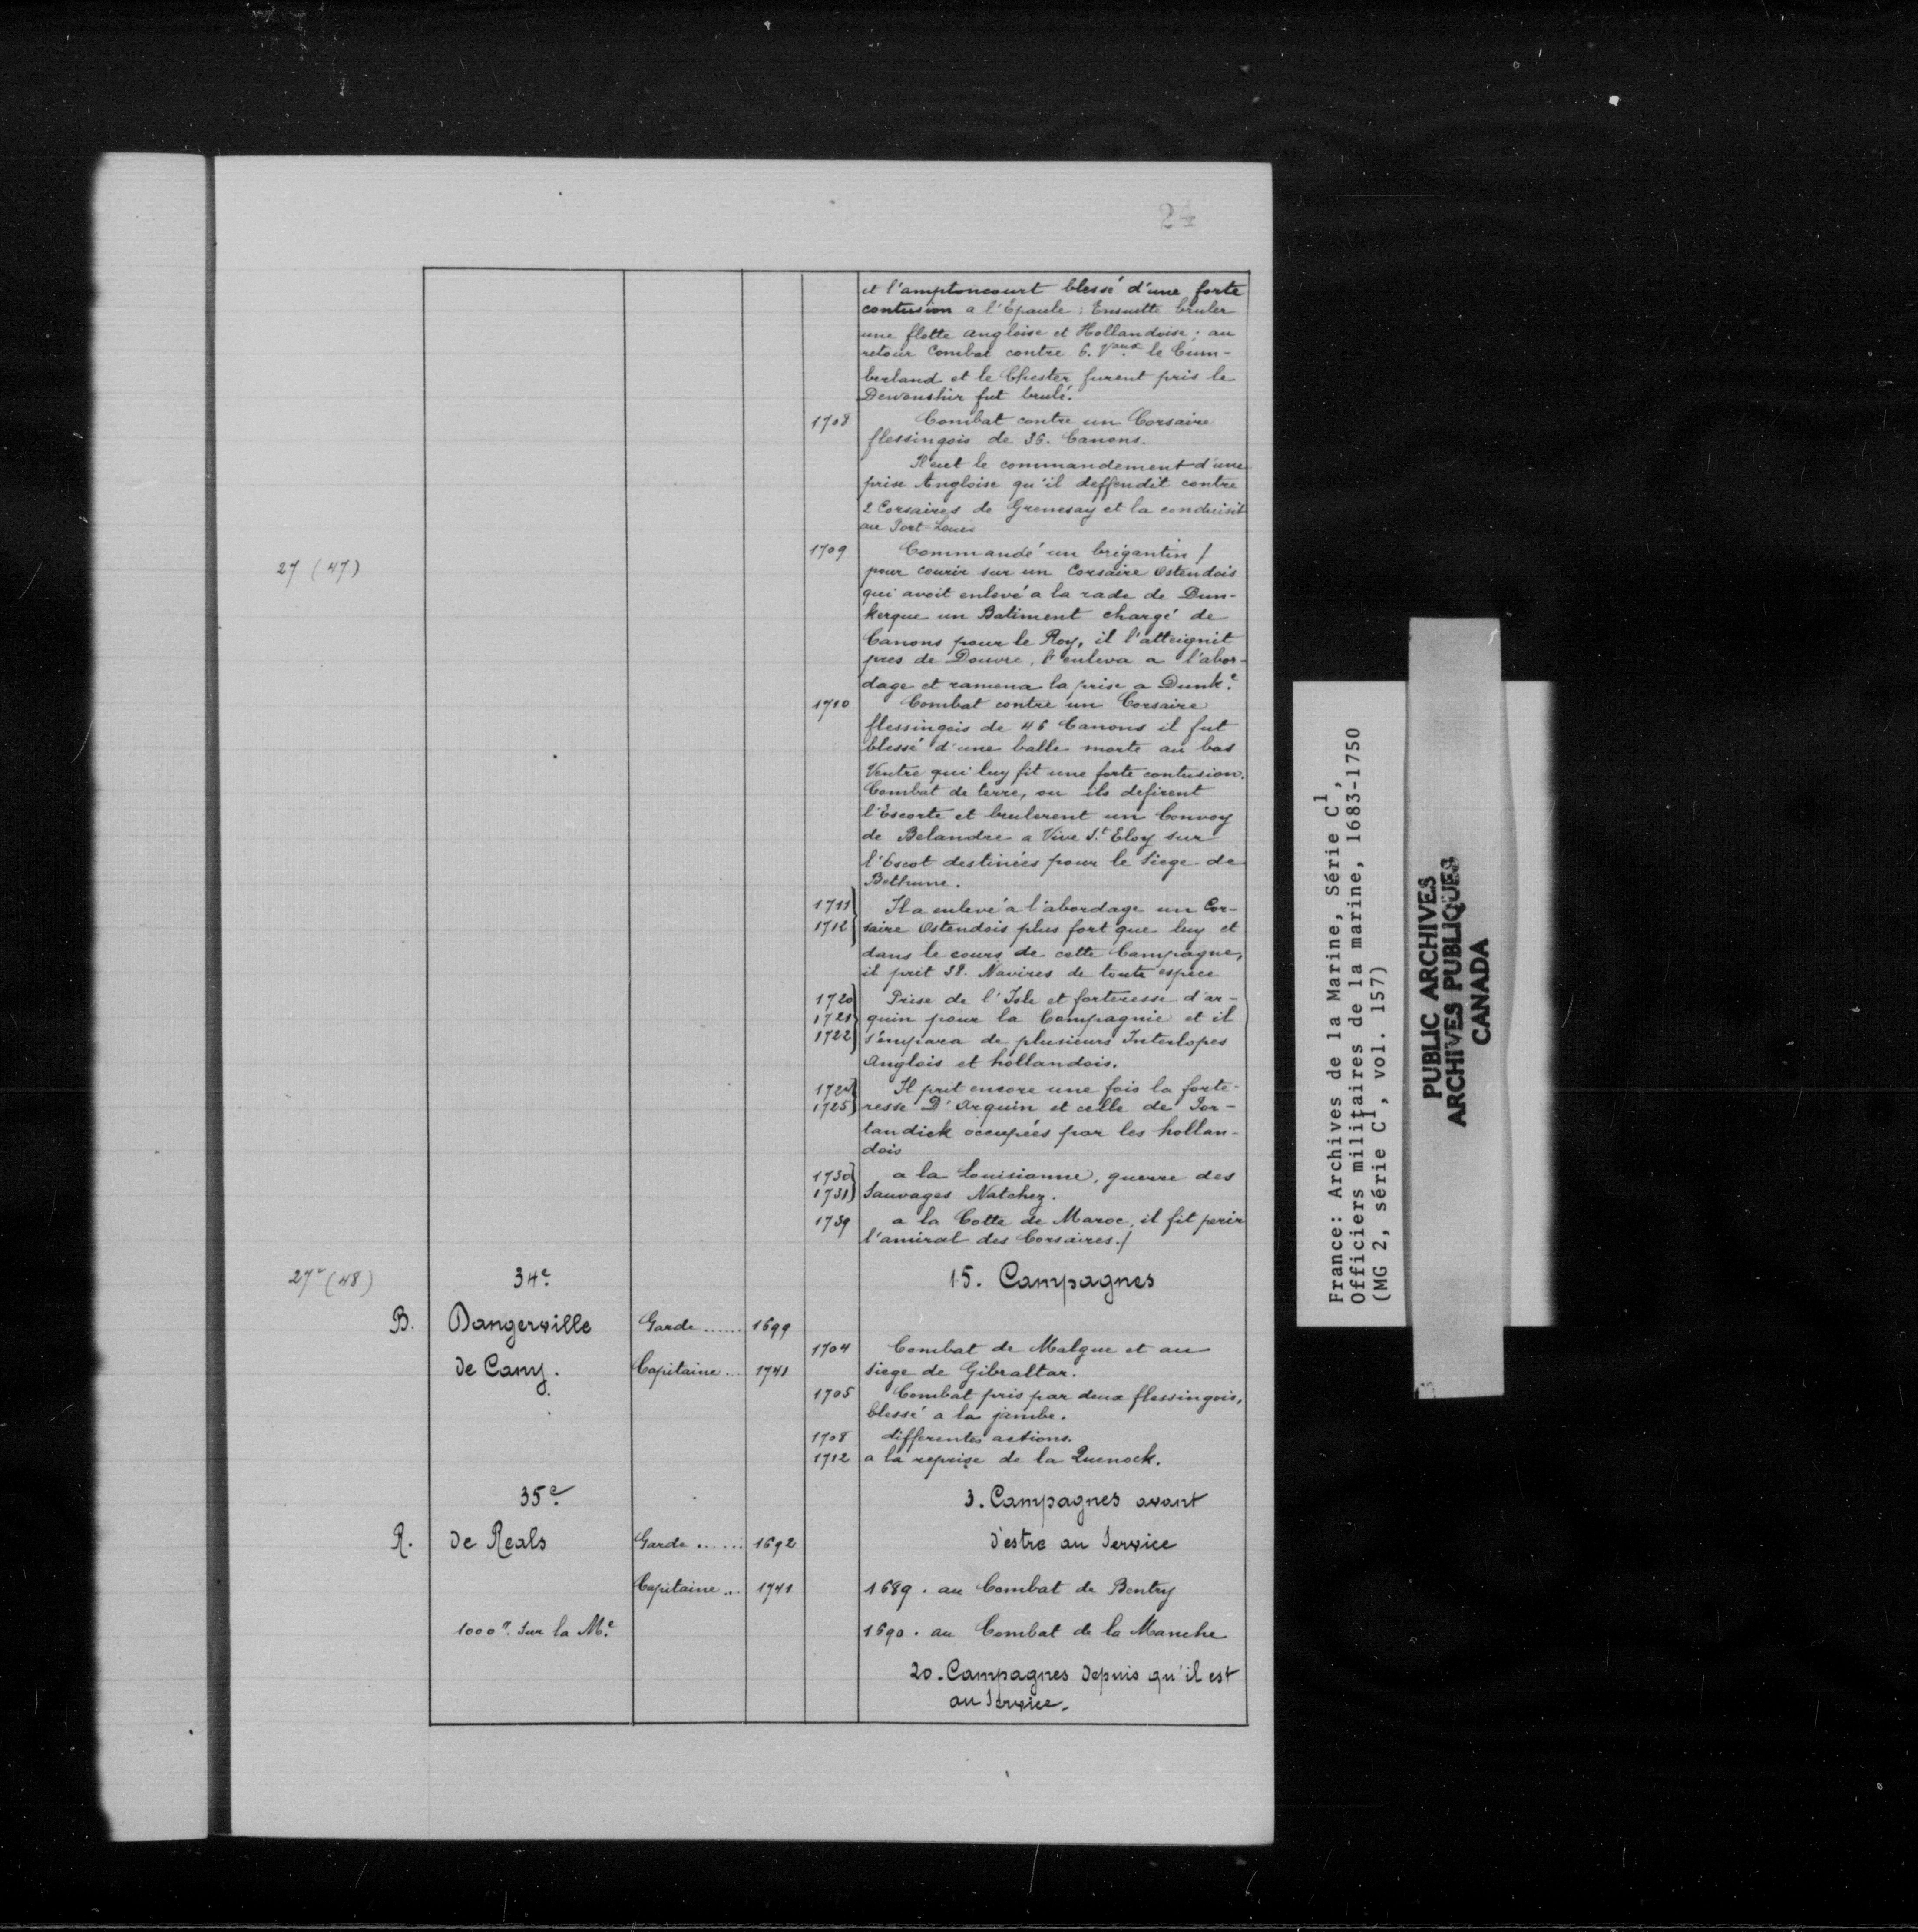 24
et l'amptoncourt blessé d'une forte
contusion a l'Epaule ; Ensuitte bruler
une flotte angloise et Hollandoise ; au
retour Combat contre 6. Vaux le Cum-
berland et le Chester furent pris le
Dewonshir fut brulé.
1708 Combat contre un Corsaire
flessingois de 36. Canons.
Il eut le commandement d'une
prise Angloise qu'il deffendit contre
2 Corsaires de Grenesay et la conduisit
au Port-Louis
27 (47)
1709 Commandé un brigantin /
pour courir sur un Corsaire Ostendois
qui avoit enlevé a la rade de Dun-
kerque un Batiment chargé de
Canons pour le Roy, il l'atteignit
pres de Douvre, l'enleva a l'abor-
dage et ramena la prise a Dunk.e
1710 Combat contre un Corsaire
flessingois de 46 Canons il fut
blessé d'une balle morte au bas
Ventre qui luy fit une forte contusion.
Combat de terre, ou ils defirent
l'Escorte et brulerent un Convoy
de Belandre a Vive St Eloy sur
l'Escot destinées pour le Siege de
Bethune.
1711 } Il a enlevé a l'abordage un Cor-
1712 } saire Ostendois plus fort que luy et
dans le cours de cette Campagne,
il prit 38. Navires de toute espece
1720 } Prise de l'Isle et forteresse d'ar-
1721 } quin pour la Compagnie et il
1722 } s'empara de plusieurs Interlopes
Anglois et hollandois.
1724 } Il prit encore une fois la forte-
1725 } resse D'Arquin et celle de Por-
tandick occupées par les hollan-
dois
1730 } a la Louisianne, guerre des
1731 } Sauvages Natchez.
1739 a la Cotte de Maroc, il fit perir
l'amiral des Corsaires. /
27v (48) 34e. 15. Campagnes
B. Dangerville Garde ...... 1699
1704 Combat de Malgue et au
de Cany. Capitaine ... 1741 siege de Gibraltar.
1705 Combat pris par deux flessingois,
blessé a la jambe.
1708 differentes actions.
1712 a la reprise de la Quenock.
35e. 3. Campagnes avant
R. de Reals Garde ...... 1692 d'estre au Service
Capitaine ... 1741 1689. au Combat de Bentry
1000.# sur la Me. 1690. au Combat de la Manche
20. Campagnes depuis qu'il est
au Service.
France: Archives de la Marine, Série C1,
Officiers militaires de la marine, 1683-1750
(MG 2, série C1, vol. 157)
PUBLIC ARCHIVES
ARCHIVES PUBLIQUES
CANADA